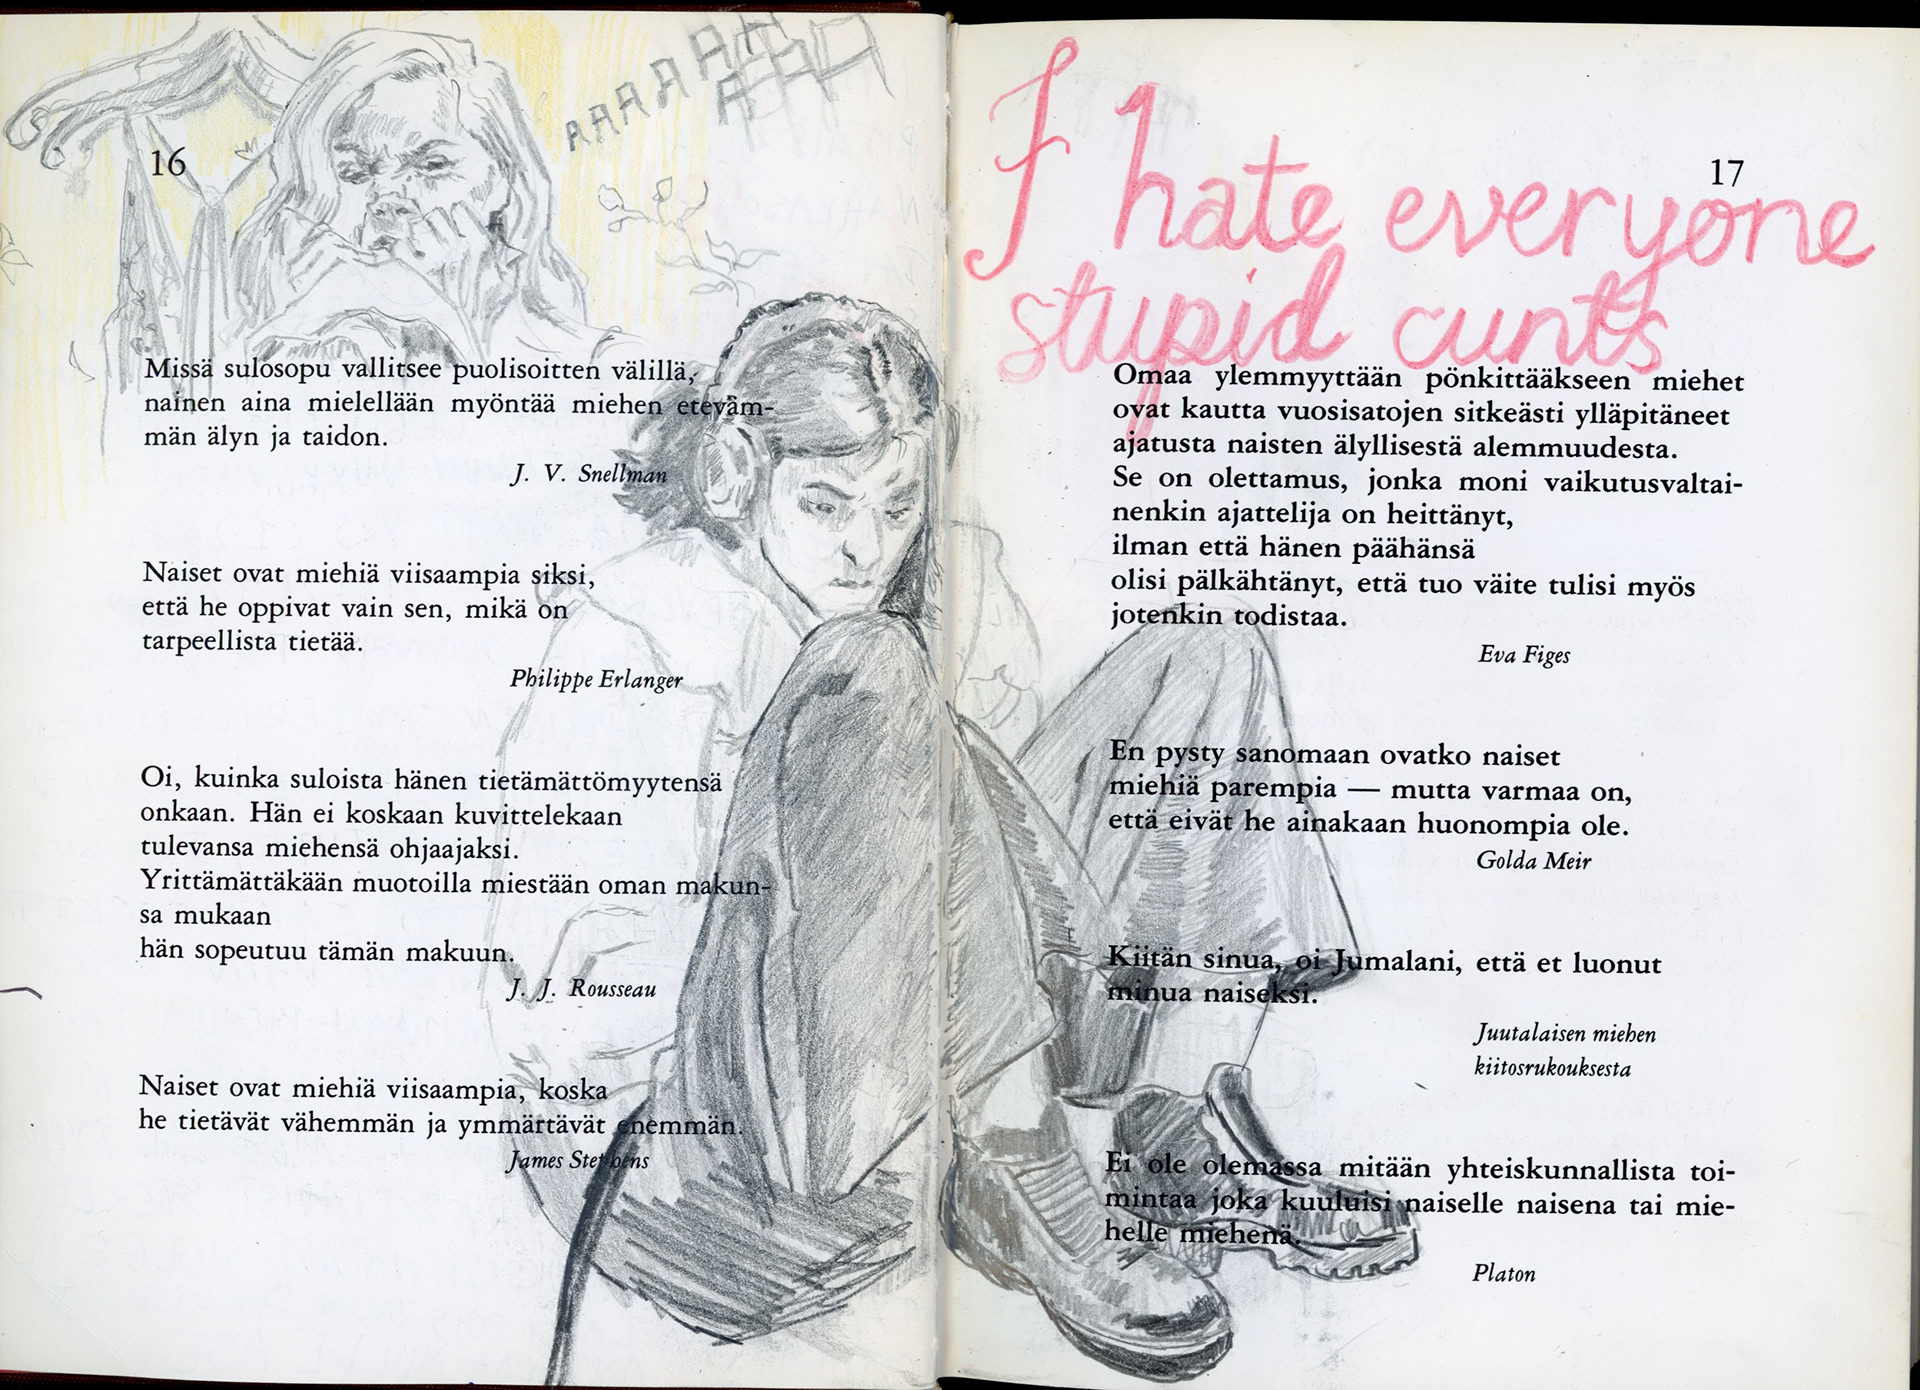 AAAAAAAAAA
16
Missä sulosopu vallitsee puolisoitten välillä,
nainen aina mielellään myöntää miehen eteväm-
män älyn ja taidon.
J. V. Snellman
Naiset ovat miehiä viisaampia siksi,
että he oppivat vain sen, mikä on
tarpeellista tietää.
Philippe Erlanger
Oi, kuinka suloista hänen tietämättömyytensä
onkaan. Hän ei koskaan kuvittelekaan
tulevansa miehensä ohjaajaksi.
Yrittämättäkään muotoilla miestään oman makun-
sa mukaan
hän sopeutuu tämän makuun.
J. J. Rousseau
Naiset ovat miehiä viisaampia, koska
he tietävät vähemmän ja ymmärtävät enemmän.
James Stephens
I hate everyone
stupid cunts
17
Omaa ylemmyyttään pönkittääkseen miehet
ovat kautta vuosisatojen sitkeästi ylläpitäneet
ajatusta naisten älyllisestä alemmuudesta.
Se on olettamus, jonka moni vaikutusvaltai-
nenkin ajattelija on heittänyt,
ilman että hänen päähänsä
olisi pälkähtänyt, että tuo väite tulisi myös
jotenkin todistaa.
Eva Figes
En pysty sanomaan ovatko naiset
miehiä parempia — mutta varmaa on,
että eivät he ainakaan huonompia ole.
Golda Meir
Kiitän sinua, oi Jumalani, että et luonut
minua naiseksi.
Juutalaisen miehen
kiitosrukouksesta
Ei ole olemassa mitään yhteiskunnallista toi-
mintaa joka kuuluisi naiselle naisena tai mie-
helle miehenä.
Platon